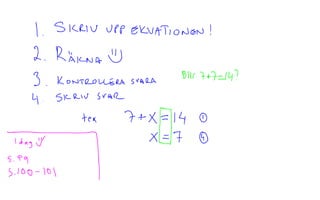 1. SKRIV UPP EKVATIONEN!
2. RÄKNA
3. KONTROLLERA SVARA
Blir 7+7=14?
4. SKRIV SVAR
tex 7+X=14 ①
X=7 ④
I dag
s. 99
s. 100-101